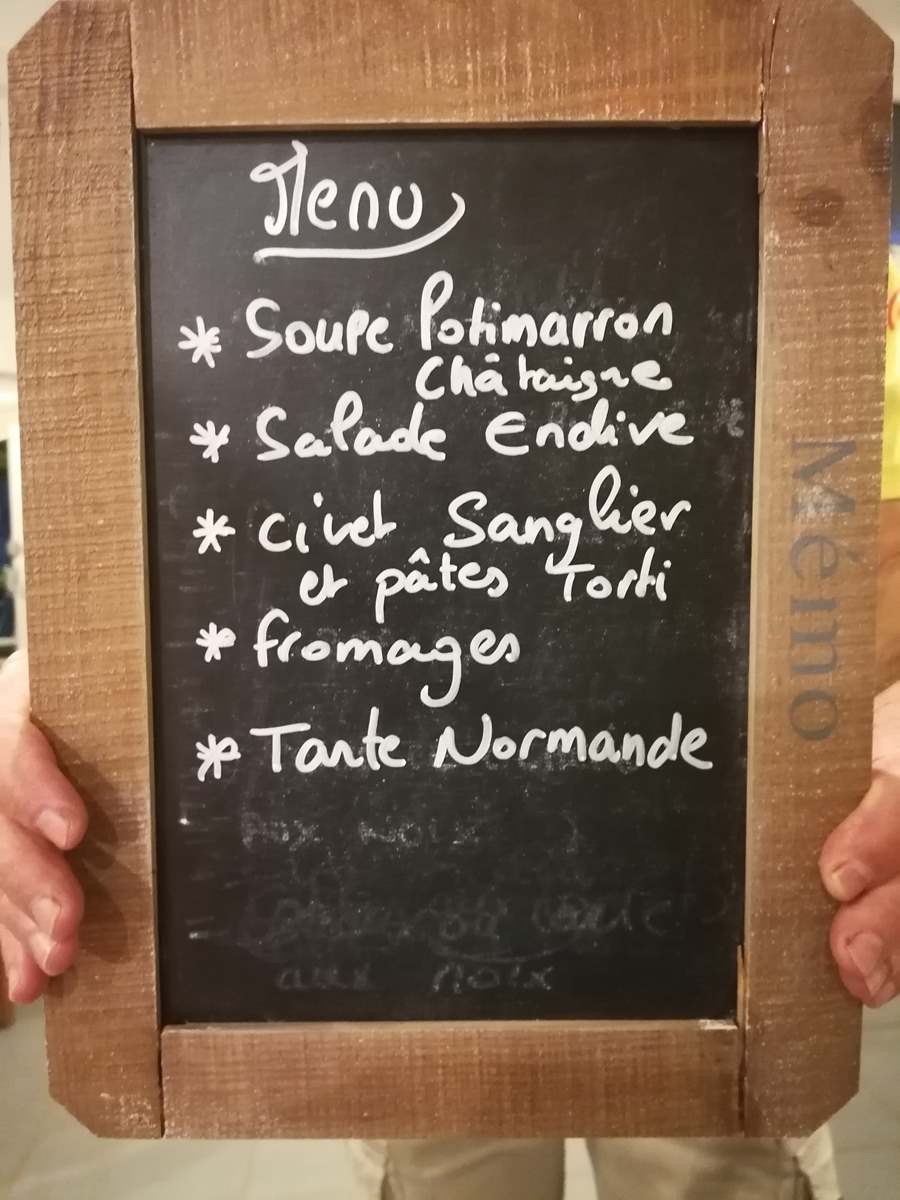 Menu
* Soupe Potimarron
Châtaigne
* Salade Endive
* Civet Sanglier
et pâtes Torti
* fromages
* Tarte Normande
aux noix
aux noix
Mémo